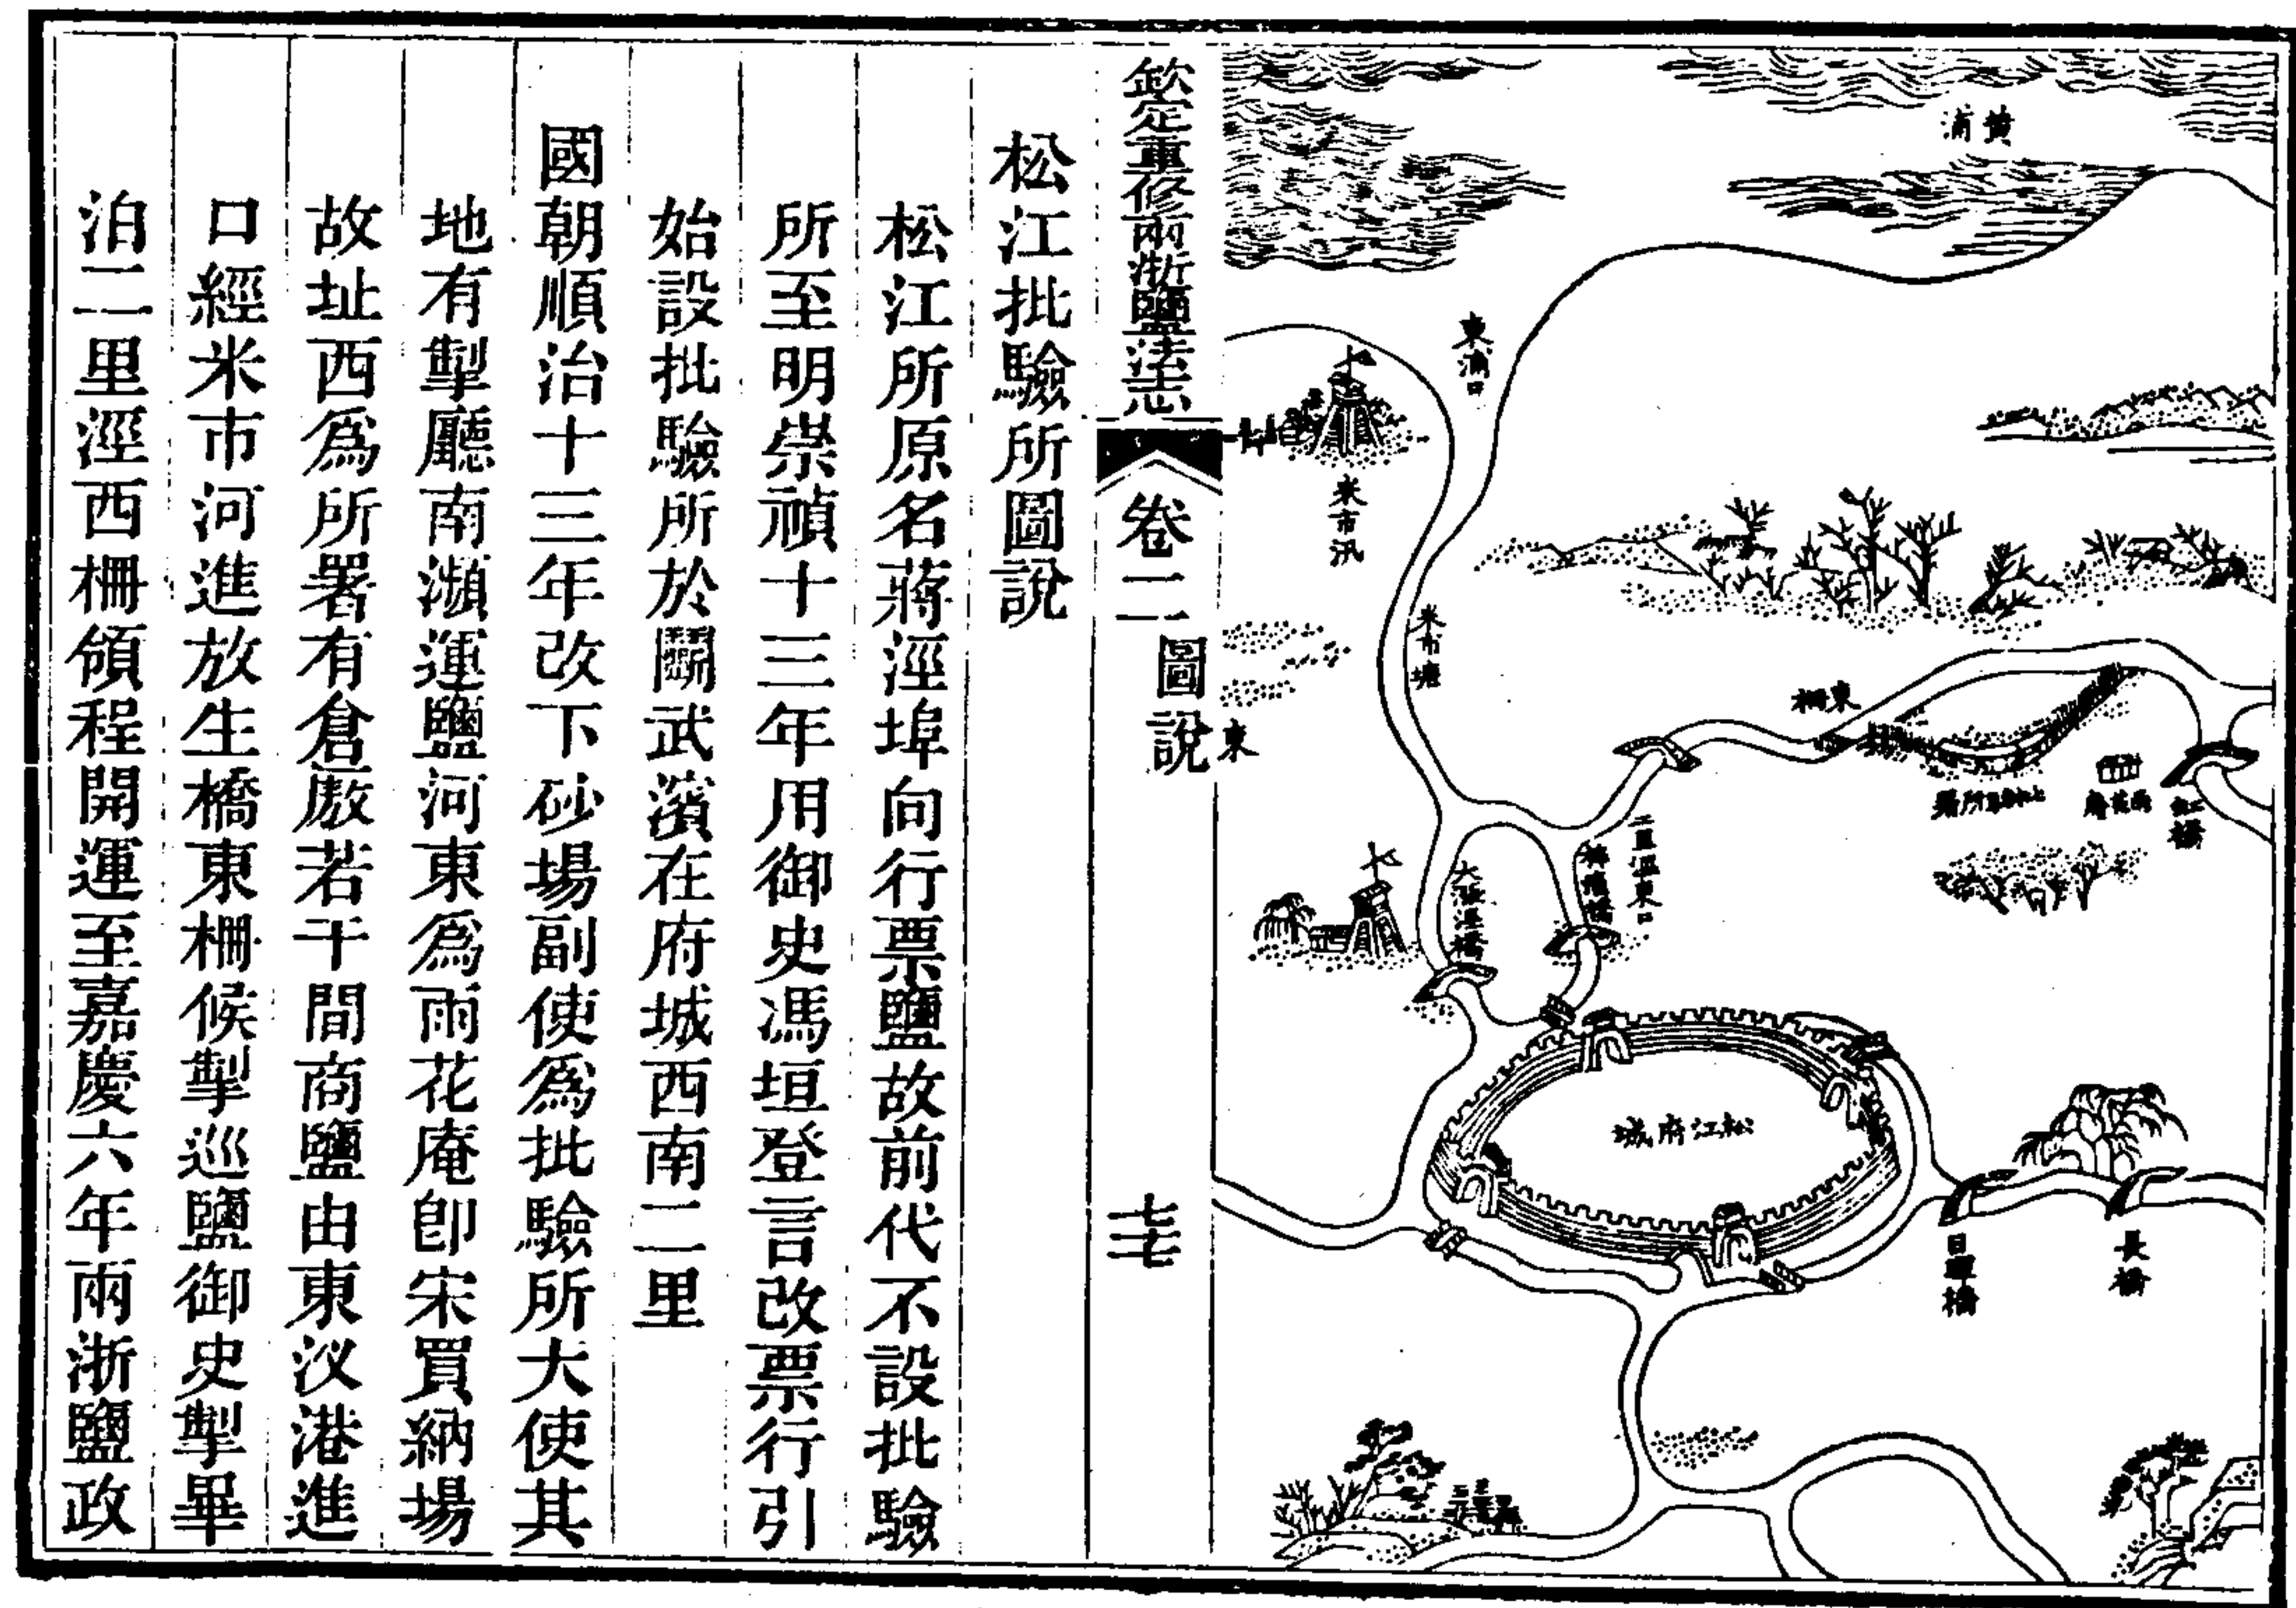 黃浦
東滷口
米市汛
米市塘
東柵
虹橋
東
大漲涇橋
二里涇東口
松江府城
日暉橋
長橋
欽定重修兩浙鹽法志
卷二
圖說
松江批驗所圖說
松江所原名蔣涇埠向行票鹽故前代不設批驗
所至明崇禎十三年用御史馮垣登言改票行引
始設批驗所於鬭武濱在府城西南二里
國朝順治十三年改下砂場副使爲批驗所大使其
地有掣廳南瀕運鹽河東爲雨花庵卽宋買納場
故址西爲所署有倉厫若干間商鹽由東汊港進
口經米市河進放生橋東柵候掣巡鹽御史掣畢
泊二里涇西柵領程開運至嘉慶六年兩浙鹽政